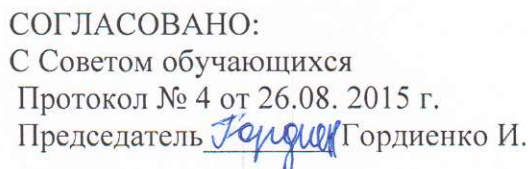 СОГЛАСОВАНО:
С Советом обучающихся
Протокол № 4 от 26.08. 2015 г.
Председатель Гордиенко И.